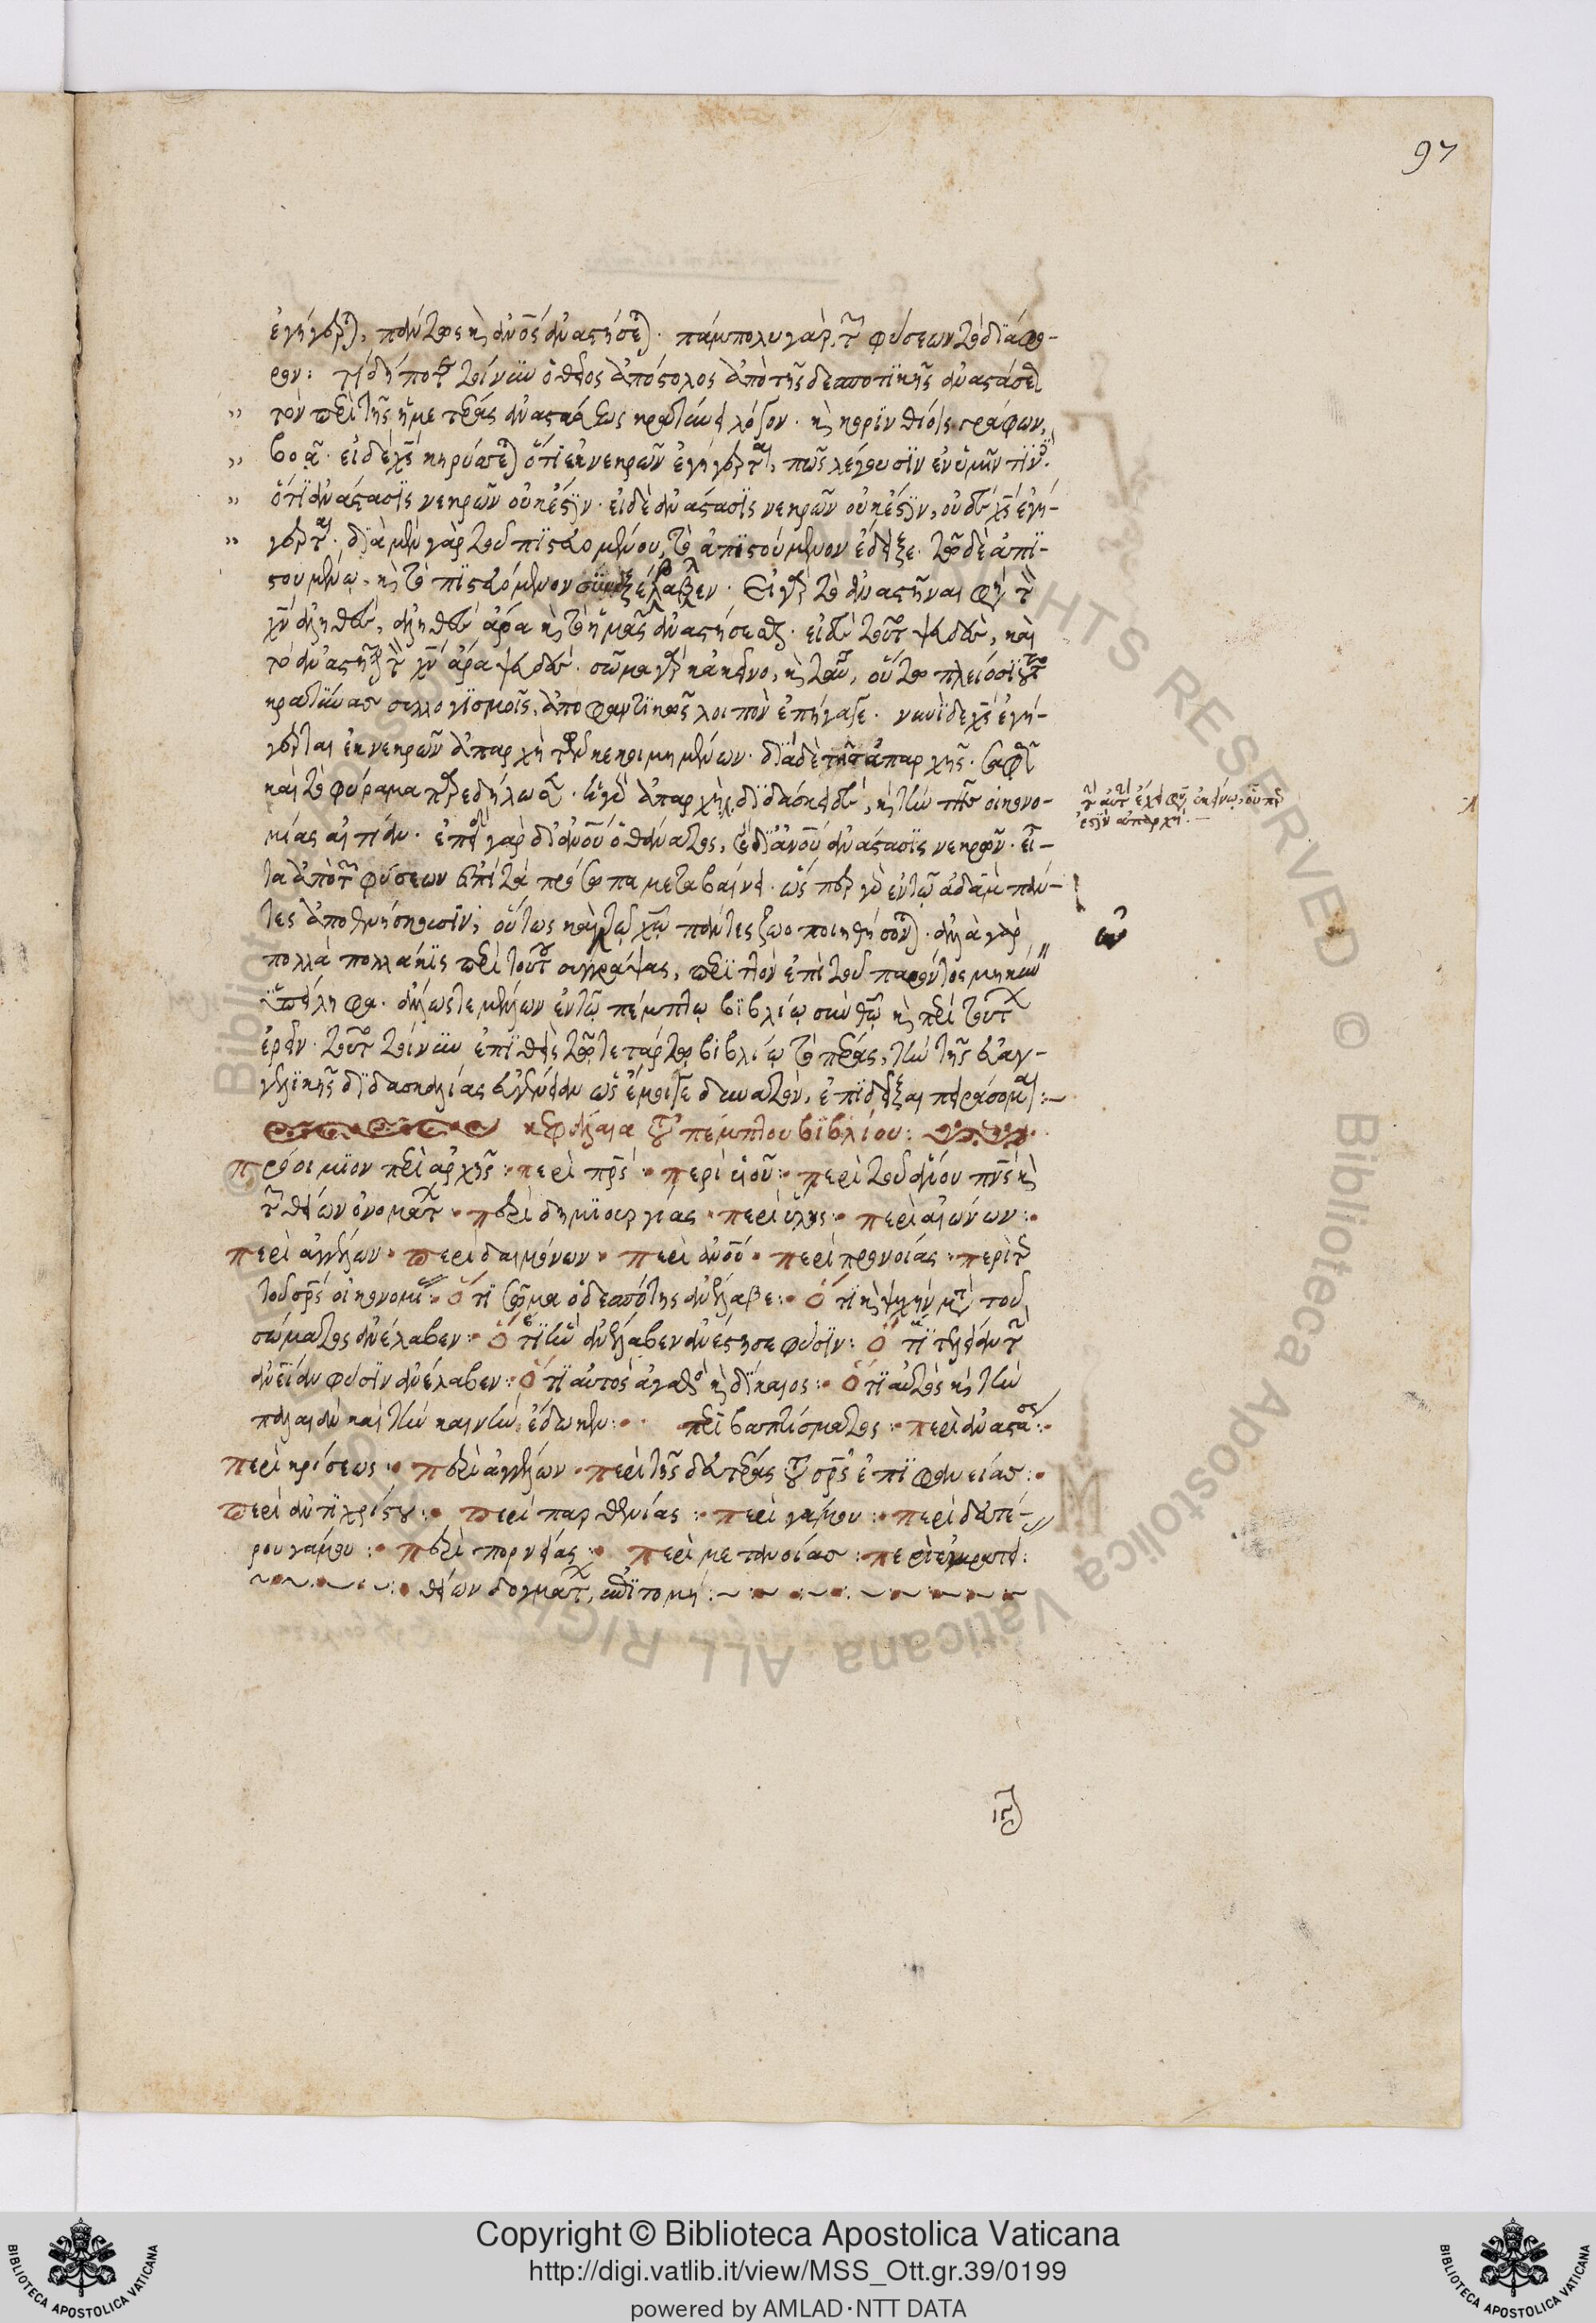 97
ἐγήγερται, πάντως κὴ ἀνος ἀναστήσεται. πάμπολυ γὰρ τῶν φύσεων τὸ διάφο-
ρον: τί δή ποτε τοίνυν ὁ θεῖος ἀπόστολος ἀπὸ τῆς δεσποτικῆς ἀναστάσεως
τὸν περὶ τῆς ἡμετέρας ἀναστάσεως κρατύνει λόγον. κὴ κορινθίοις γράφων,
βοᾷ. εἰ δὲ χς κηρύσσεται ὅτι ἐκ νεκρῶν ἐγήγερται, πῶς λέγουσιν ἐν ὑμῖν τινὲς
ὅτι ἀνάστασις νεκρῶν οὐκ ἔστιν. εἰ δὲ ἀνάστασις νεκρῶν οὐκ ἔστιν, οὐδὲ χς ἐγή-
γερται. διὰ μὲν γὰρ τοῦ πιστευομένου, τὸ ἀπιστούμενον ἔδειξε. τῷ δὲ ἀπι-
στουμένῳ, κὴ τὸ πιστευόμενον
χν ἀληθὲς, ἀληθὲς ἄρα κὴ τὸ ἡμᾶς ἀναστήσεσθαι. εἰ δὲ τοῦτο ψεῦδος, καὶ
τὸ ἀναστῆναι τὸν χν ἄρα ψεῦδος. σῶμα γὰρ κἀκεῖνο, κὴ τοῦτο, οὕτω πλείοσι τοῦτο
κρατύνας συλλογισμοῖς, ἀποφαντικῶς λοιπὸν ἐπήγαγε. νυνὶ δὲ χς ἐγή-
γερται ἐκ νεκρῶν ἀπαρχὴ τῶν κεκοιμημένων. διὰ δὲ τῆς ἀπαρχῆς
καὶ τὸ φύραμα ἀπαρχὴν διδάσκει δὲ, κὴ τὴν τῆς οἰκονο-
μίας αἰτίαν. ἐπειδὴ γὰρ δι' ἀνου ὁ θάνατος, κὴ δι' ἀνου ἀνάστασις νεκρῶν. εἶ-
τα ἀπὸ τῶν φύσεων ἐπὶ τὰ πρόσωπα μεταβαίνει. ὥσπερ γὰρ ἐν τῷ ἀδὰμ πάν-
τες ἀποθνήσκουσιν, οὕτως καὶ ἐν τῷ χω πάντες ζωοποιηθήσονται. ἀλλὰ γὰρ
πολλὰ πολλάκις περὶ τούτου συγγράψας, περιττὸν ἐπὶ τοῦ παρόντος μηκύνειν
ὑπείληφα. ἄλλως τε μέλλων ἐν τῷ πέμπτῳ βιβλίῳ σὺν θῷ κὴ περὶ τούτων
ἐρεῖν. τοῦτο τοίνυν ἐπιθεὶς τῷ τετάρτῳ βιβλίῳ τὸ πέρας, τὴν τῆς εὐαγ-
γελικῆς διδασκαλίας εὐγένειαν ὡς ἔμοιγε δυνατὸν, ἐπιδεῖξαι πειράσομαι:
κεφάλαια τοῦ πέμπτου βιβλίου:
προοίμιον περὶ ἀρχῆς: περὶ πρς: περὶ υἱοῦ: περὶ τοῦ ἁγίου πνς κὴ
τῶν θείων ὀνομάτων: περὶ δημιουργίας. περὶ ὕλης: περὶ αἰώνων:
περὶ ἀγγέλων. περὶ δαιμόνων. περὶ ἀνου. περὶ προνοίας. περὶ τῆς
τοῦ σρς οἰκονομίας: ὅτι σῶμα ὁ δεσπότης ἀνέλαβε: ὅτι κὴ ψυχὴν μετὰ τοῦ
σώματος ἀνέλαβεν: ὅτι ἣν ἀνέλαβεν ἀνέστησε φύσιν: ὅτι τελείαν τὴν
ἀνείαν φύσιν ἀνέλαβεν: ὅτι αὐτὸς ἀγαθὸς κὴ δίκαιος: ὅτι αὐτὸς κὴ τὴν
παλαιὰν καὶ τὴν καινὴν ἔδωκεν: περὶ βαπτίσματος: περὶ ἀναστάσεως:
περὶ κρίσεως: περὶ ἀγγέλων: περὶ τῆς δευτέρας τοῦ σρς ἐπιφανείας:
περὶ ἀντιχρίστου: περὶ παρθενίας: περὶ γάμου: περὶ δευτέ-
ρου γάμου: περὶ πορνείας: περὶ μετανοίας: περὶ ἐγκρατεί:
θείων δογμάτων, ἐπιτομή:
Copyright © Biblioteca Apostolica Vaticana
http://digi.vatlib.it/view/MSS_Ott.gr.39/0199
powered by AMLAD·NTT DATA
BIBLIOTECA APOSTOLICA VATICANA
BIBLIOTECA APOSTOLICA VATICANA
© Biblioteca Apostolica Vaticana ALL RIGHTS RESERVED